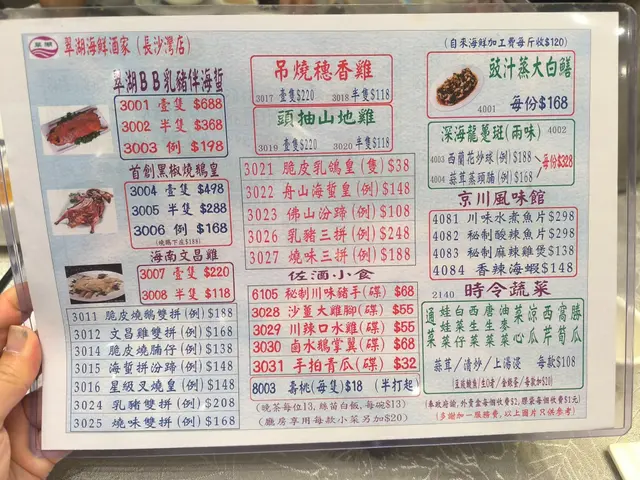 翠湖
翠湖海鮮酒家（長沙灣店）
翠湖BB乳豬伴海蜇
3001 壹隻 $688
3002 半隻 $368
3003 例 $198
首創黑椒燒鵝皇
3004 壹隻 $478
3005 半隻 $288
3006 例 $168
(燒鵝下庄$188)
海南文昌雞
3007 壹隻 $220
3008 半隻 $118
3011 脆皮燒鵝雙拼(例) $188
3012 文昌雞雙拼(例) $168
3014 脆皮燒腩仔(例) $138
3015 海蜇拼汾蹄(例) $148
3016 星級叉燒皇(例) $148
3024 乳豬雙拼(例) $208
3025 燒味雙拼(例) $168
吊燒穗香雞
3017 壹隻$220 3018 半隻$118
頭抽山地雞
3019 壹隻$220 3020 半隻$118
3021 脆皮乳鴿皇(隻) $38
3022 舟山海蜇皇(例) $148
3023 佛山汾蹄(例) $108
3026 乳豬三拼(例) $248
3027 燒味三拼(例) $188
佐酒小食
6105 秘制川味豬手(碟) $68
3028 沙薑大雞腳(碟) $55
3029 川辣口水雞(碟) $55
3030 鹵水鵝掌翼(碟) $68
3031 手拍青瓜(碟) $32
8003 壽桃(每隻)$18 (半打起)
(晚茶每位13, 絲苗白飯, 每碗$13)
(廳房享用每款小菜另加$20)
(自來海鮮加工費每斤收$120)
豉汁蒸大白鱔
4001 每份$168
深海龍躉斑(兩味) 4002
4003 西蘭花炒球(例) $188
4004 蒜茸蒸頭腩(例) $168
每份$328
京川風味館
4081 川味水煮魚片 $298
4082 秘制酸辣魚片 $298
4083 秘制麻辣雞煲 $138
4084 香辣海蝦 $148
2140 時令蔬菜
通菜
娃娃菜
白菜仔
西生菜
唐生菜
油麥菜
菜心
涼瓜
西芹
窩筍
勝瓜
蒜茸/清炒/上湯浸 每款$108
(奉政府諭, 外賣盒每個收費$2, 膠袋每個收費$1元)
(多謝加一服務費, 以上圖片只供參考)